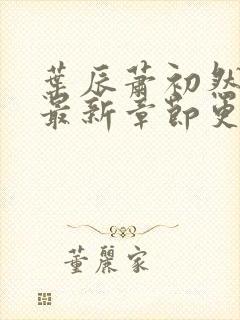 葉辰蕭初然
最新章節更
董麗家